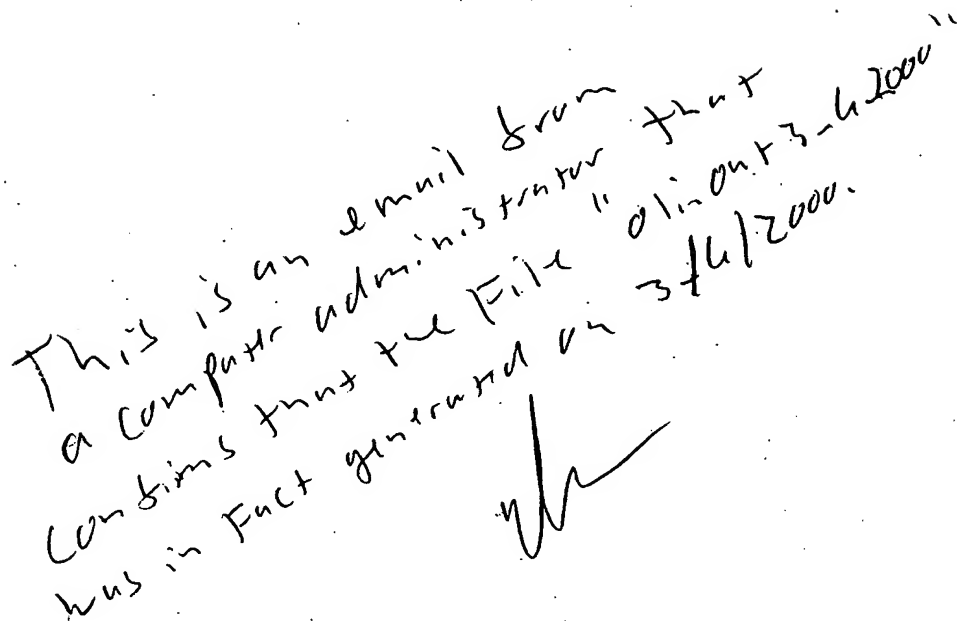 This is an email from
a computer administrator that
confirms that the File "olinout3_4_2000"
was in Fact generated on 3/4/2000.